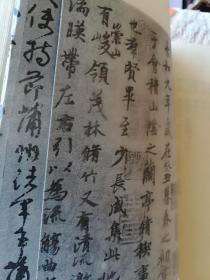 和九年歲在癸丑暮春之初
于會稽山陰之蘭亭脩禊事
也羣賢畢至少長咸集此地
有崇山峻領茂林脩竹又有清流激
湍暎帶左右引以為流觴曲
使持節蒲州諸軍事蒲